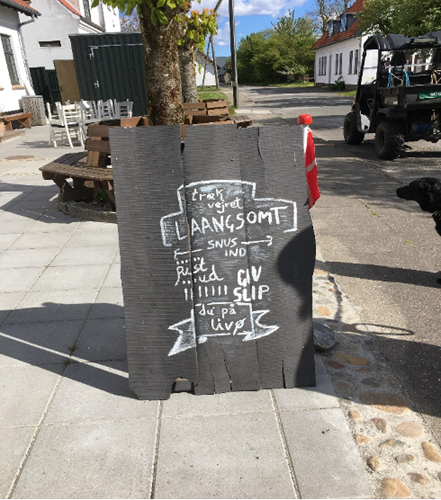 træk
vejret
LAANGSOMT
SNUS
IND
pust
ud
GIV
SLIP
du på
livø